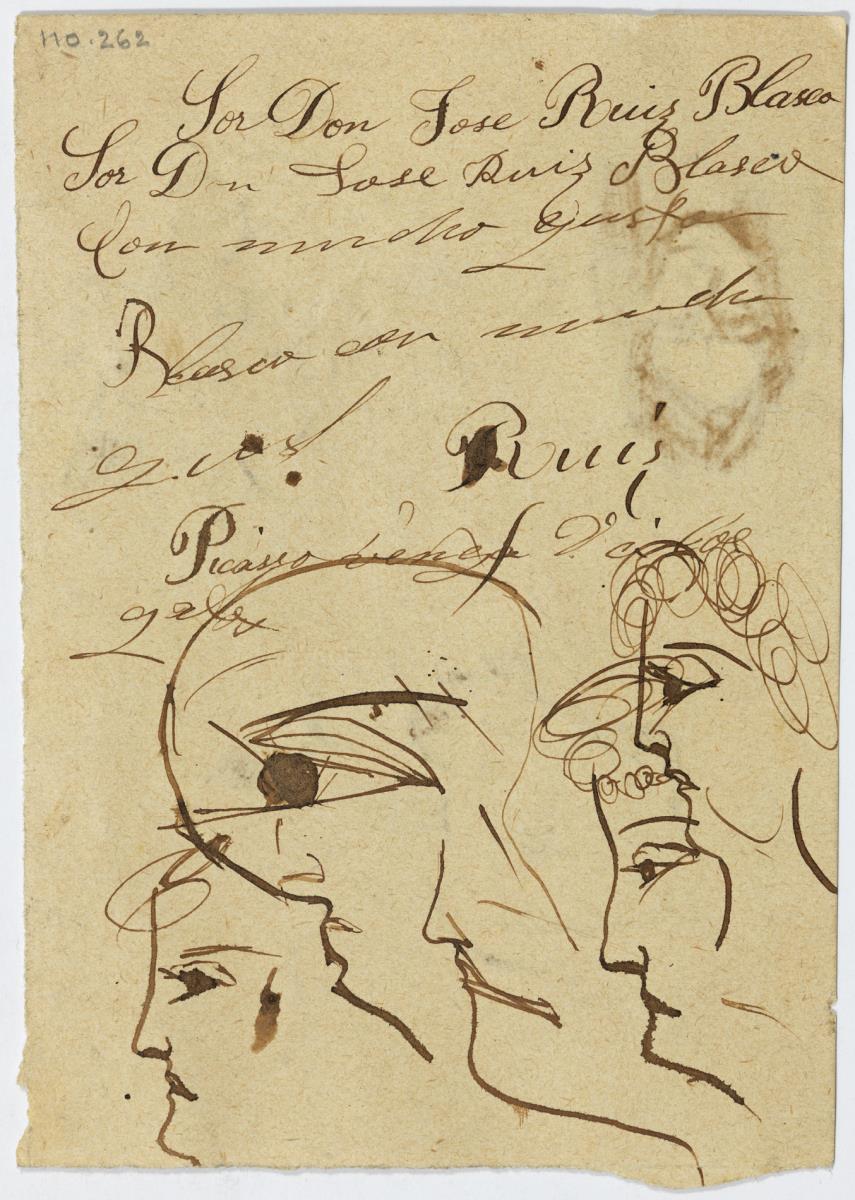 110.262
Sor Don Jose Ruiz Blasco
Sor Dn Jose Ruiz Blasco
Con mucho gusto
Blasco con mucho
gus
Ruiz
Picasso venga